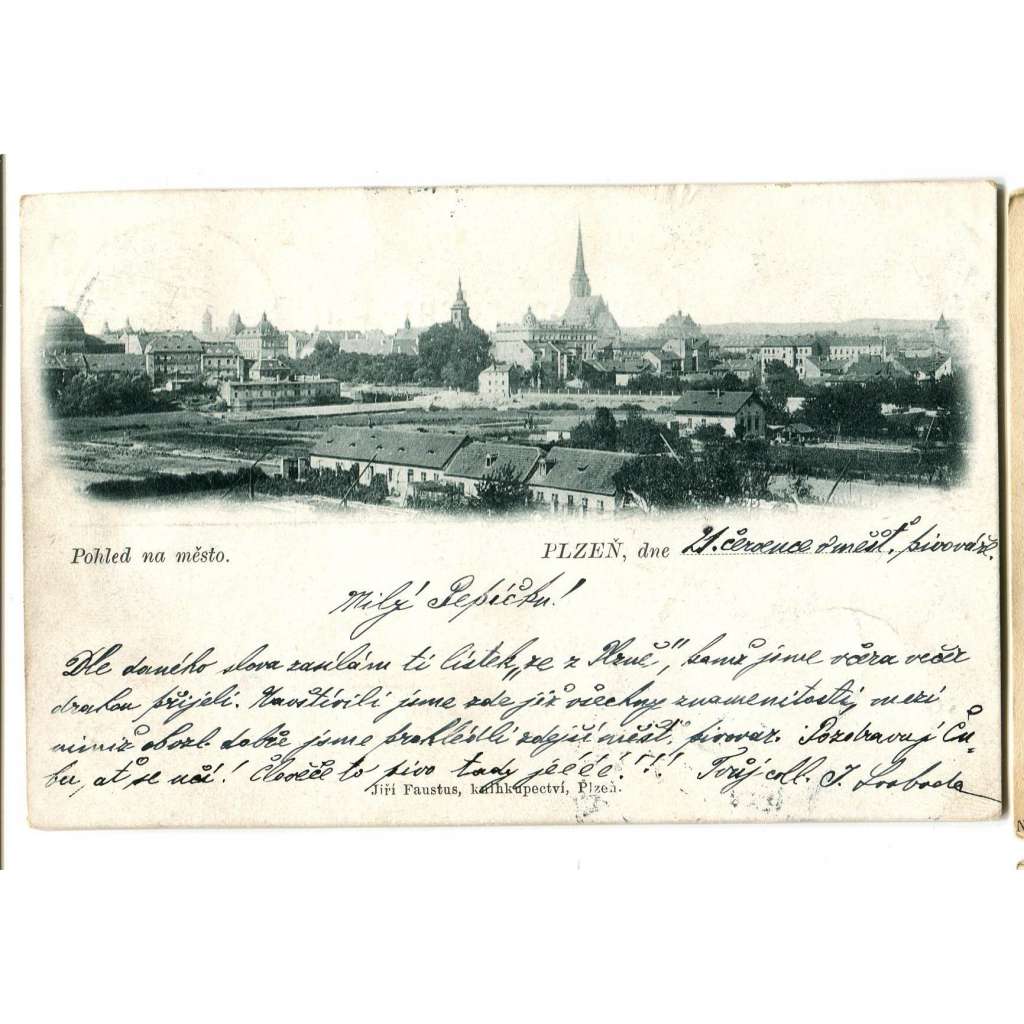 Pohled na město.
PLZEŇ, dne 21. července v měšť. pivováře.
Milý Pepíčku!
Dle daného slova zasílám ti lístek „ze z Plzně", kamž jsme včera večer
drahou přijeli. Navštívili jsme zde již všechny znamenitosti, mezi
nimiž obzl. dobře jsme prohlédli zdejší měšť. pivovar. Pozdravuj Ču-
bu, ať se učí! Člověče to pivo tady jééé!!! Tvůj coll. J. Svoboda
Jiří Faustus, knihkupectví, Plzeň.